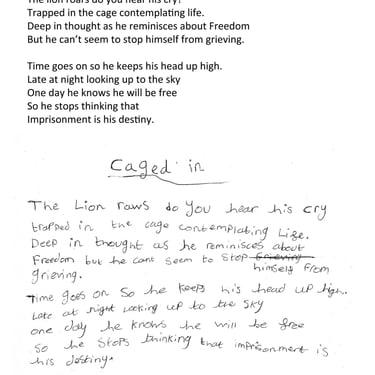 The lion roars do you hear his cry!
Trapped in the cage contemplating life.
Deep in thought as he reminisces about Freedom
But he can’t seem to stop himself from grieving.
Time goes on so he keeps his head up high.
Late at night looking up to the sky
One day he knows he will be free
So he stops thinking that
Imprisonment is his destiny.
Caged in
The Lion raws do you hear his cry
trapped in the cage contemplating Life.
Deep in thought as he reminisces about
Freedom but he cant seem to stop grieving
himself from
grieving.
Time goes on so he keeps his head up high.
Late at night looking up to the sky
one day he knows he will be free
so he stops thinking that imprisonment is
his destiny.